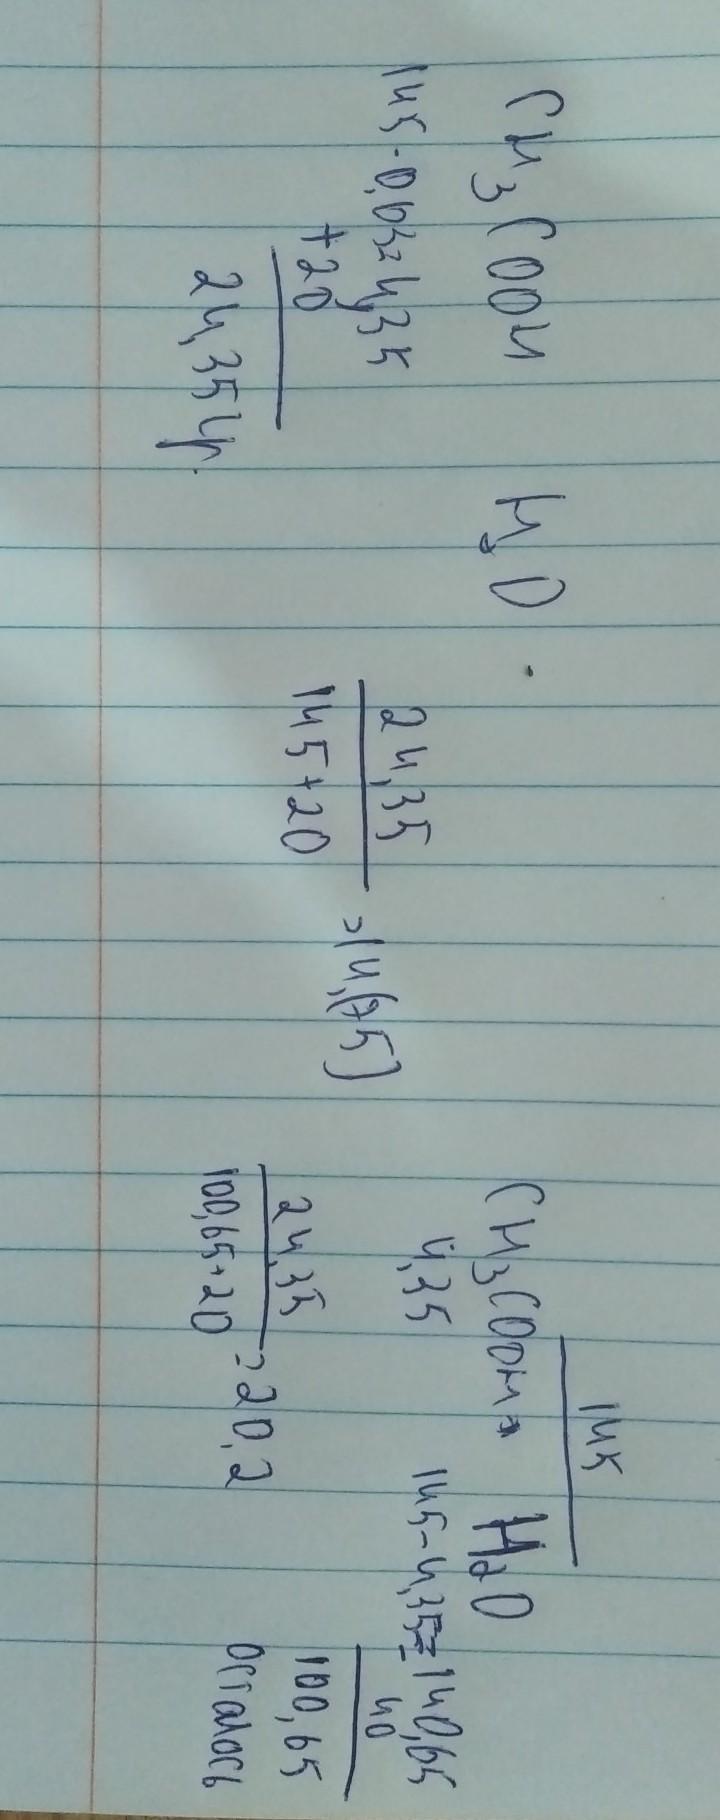 CH3COOH H2O
145·0,03=4,35
+20
24,35 гр.
24,35
145+20
=14,(75)
145
CH3COOH H2O
4,35 145-4,35=140,65
40
100,65
осталось
24,35
100,65+20
=20,2